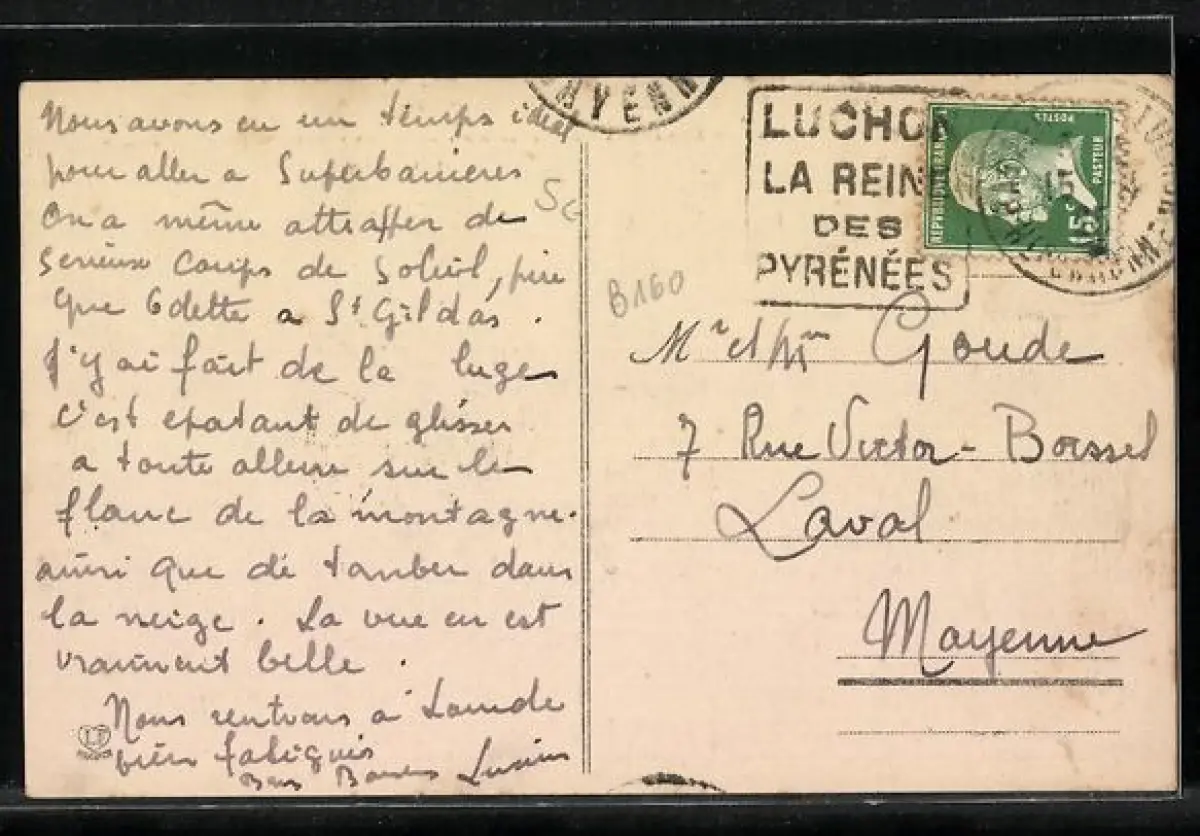 Nous avons eu un temps idéal
pour aller a Superbanieres
On a même attraper de
serieux coups de Soleil, pire
que Odette a St Gildas.
J'y ai fait de la luge
c'est epatant de glisser
a toute allure sur le
flanc de la montagne.
ainsi que de tomber dans
la neige. La vue en est
vraiment belle.
Nous rentrons à
bien fatigués
Bons Baisers Lucien
MYENN
LUCHON
LA REINE
DES
PYRÉNÉES
REPUBLIQUE FRANCAISE
POSTES
PASTEUR
15c
B160
Mr et Mme Goude
7 Rue Victor-Boissel
Laval
Mayenne